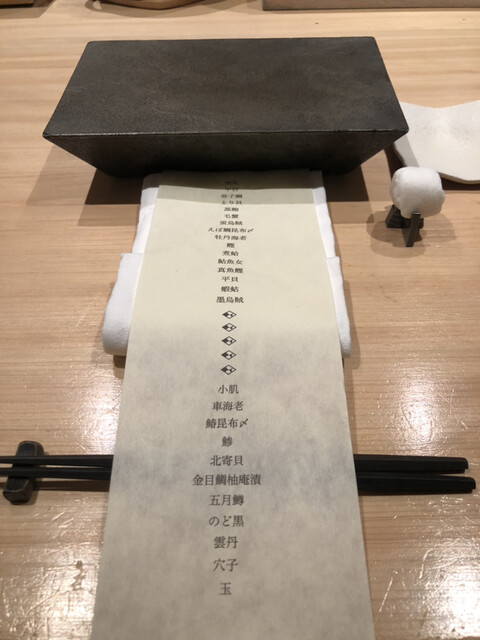 春子鯛
とり貝
毛蟹
蛍烏賊
えぼ鯛昆布〆
牡丹海老
鰹
煮蛤
鮎魚女
真魚鰹
平貝
蝦蛄
墨烏賊
小肌
車海老
鰆昆布〆
鯵
北寄貝
金目鯛柚庵漬
五月鱒
のど黒
雲丹
穴子
玉